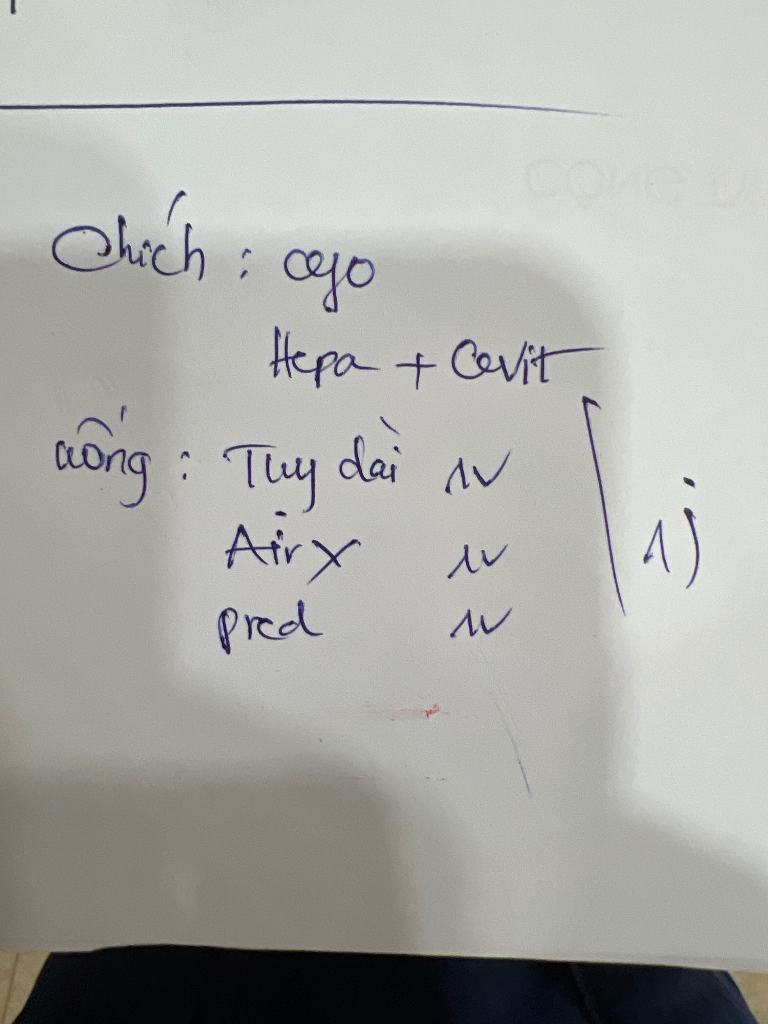 Chích : cyo
Hepa + Cevit
uống : Tuy dài 1V
Air X 1V
pred 1V
1j